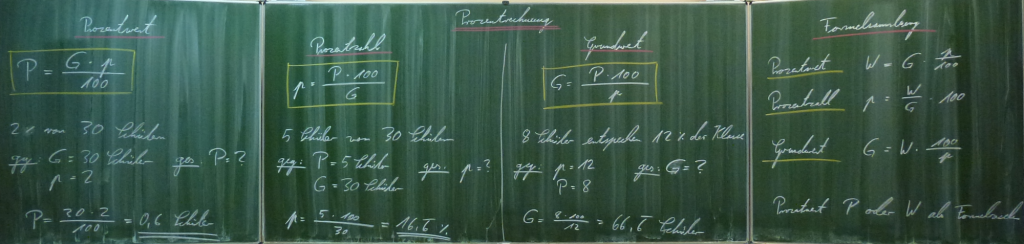 Prozentrechnung
Prozentwert
P = G · p / 100
2% von 30 Schülern
geg: G = 30 Schüler ges: P = ?
p = 2
P = 30 · 2 / 100 = 0,6 Schüler
Prozentzahl
p = P · 100 / G
5 Schüler von 30 Schülern
geg: P = 5 Schüler ges: p = ?
G = 30 Schüler
p = 5 · 100 / 30 = 16,6̅ %
Grundwert
G = P · 100 / p
8 Schüler entsprechen 12% der Klasse
geg: p = 12 ges: G = ?
P = 8
G = 8 · 100 / 12 = 66,6̅ Schüler
Formelsammlung
Prozentwert W = G · p / 100
Prozentzahl p = W / G · 100
Grundwert G = W · 100 / p
Prozentwert P oder W als Formelzeichen